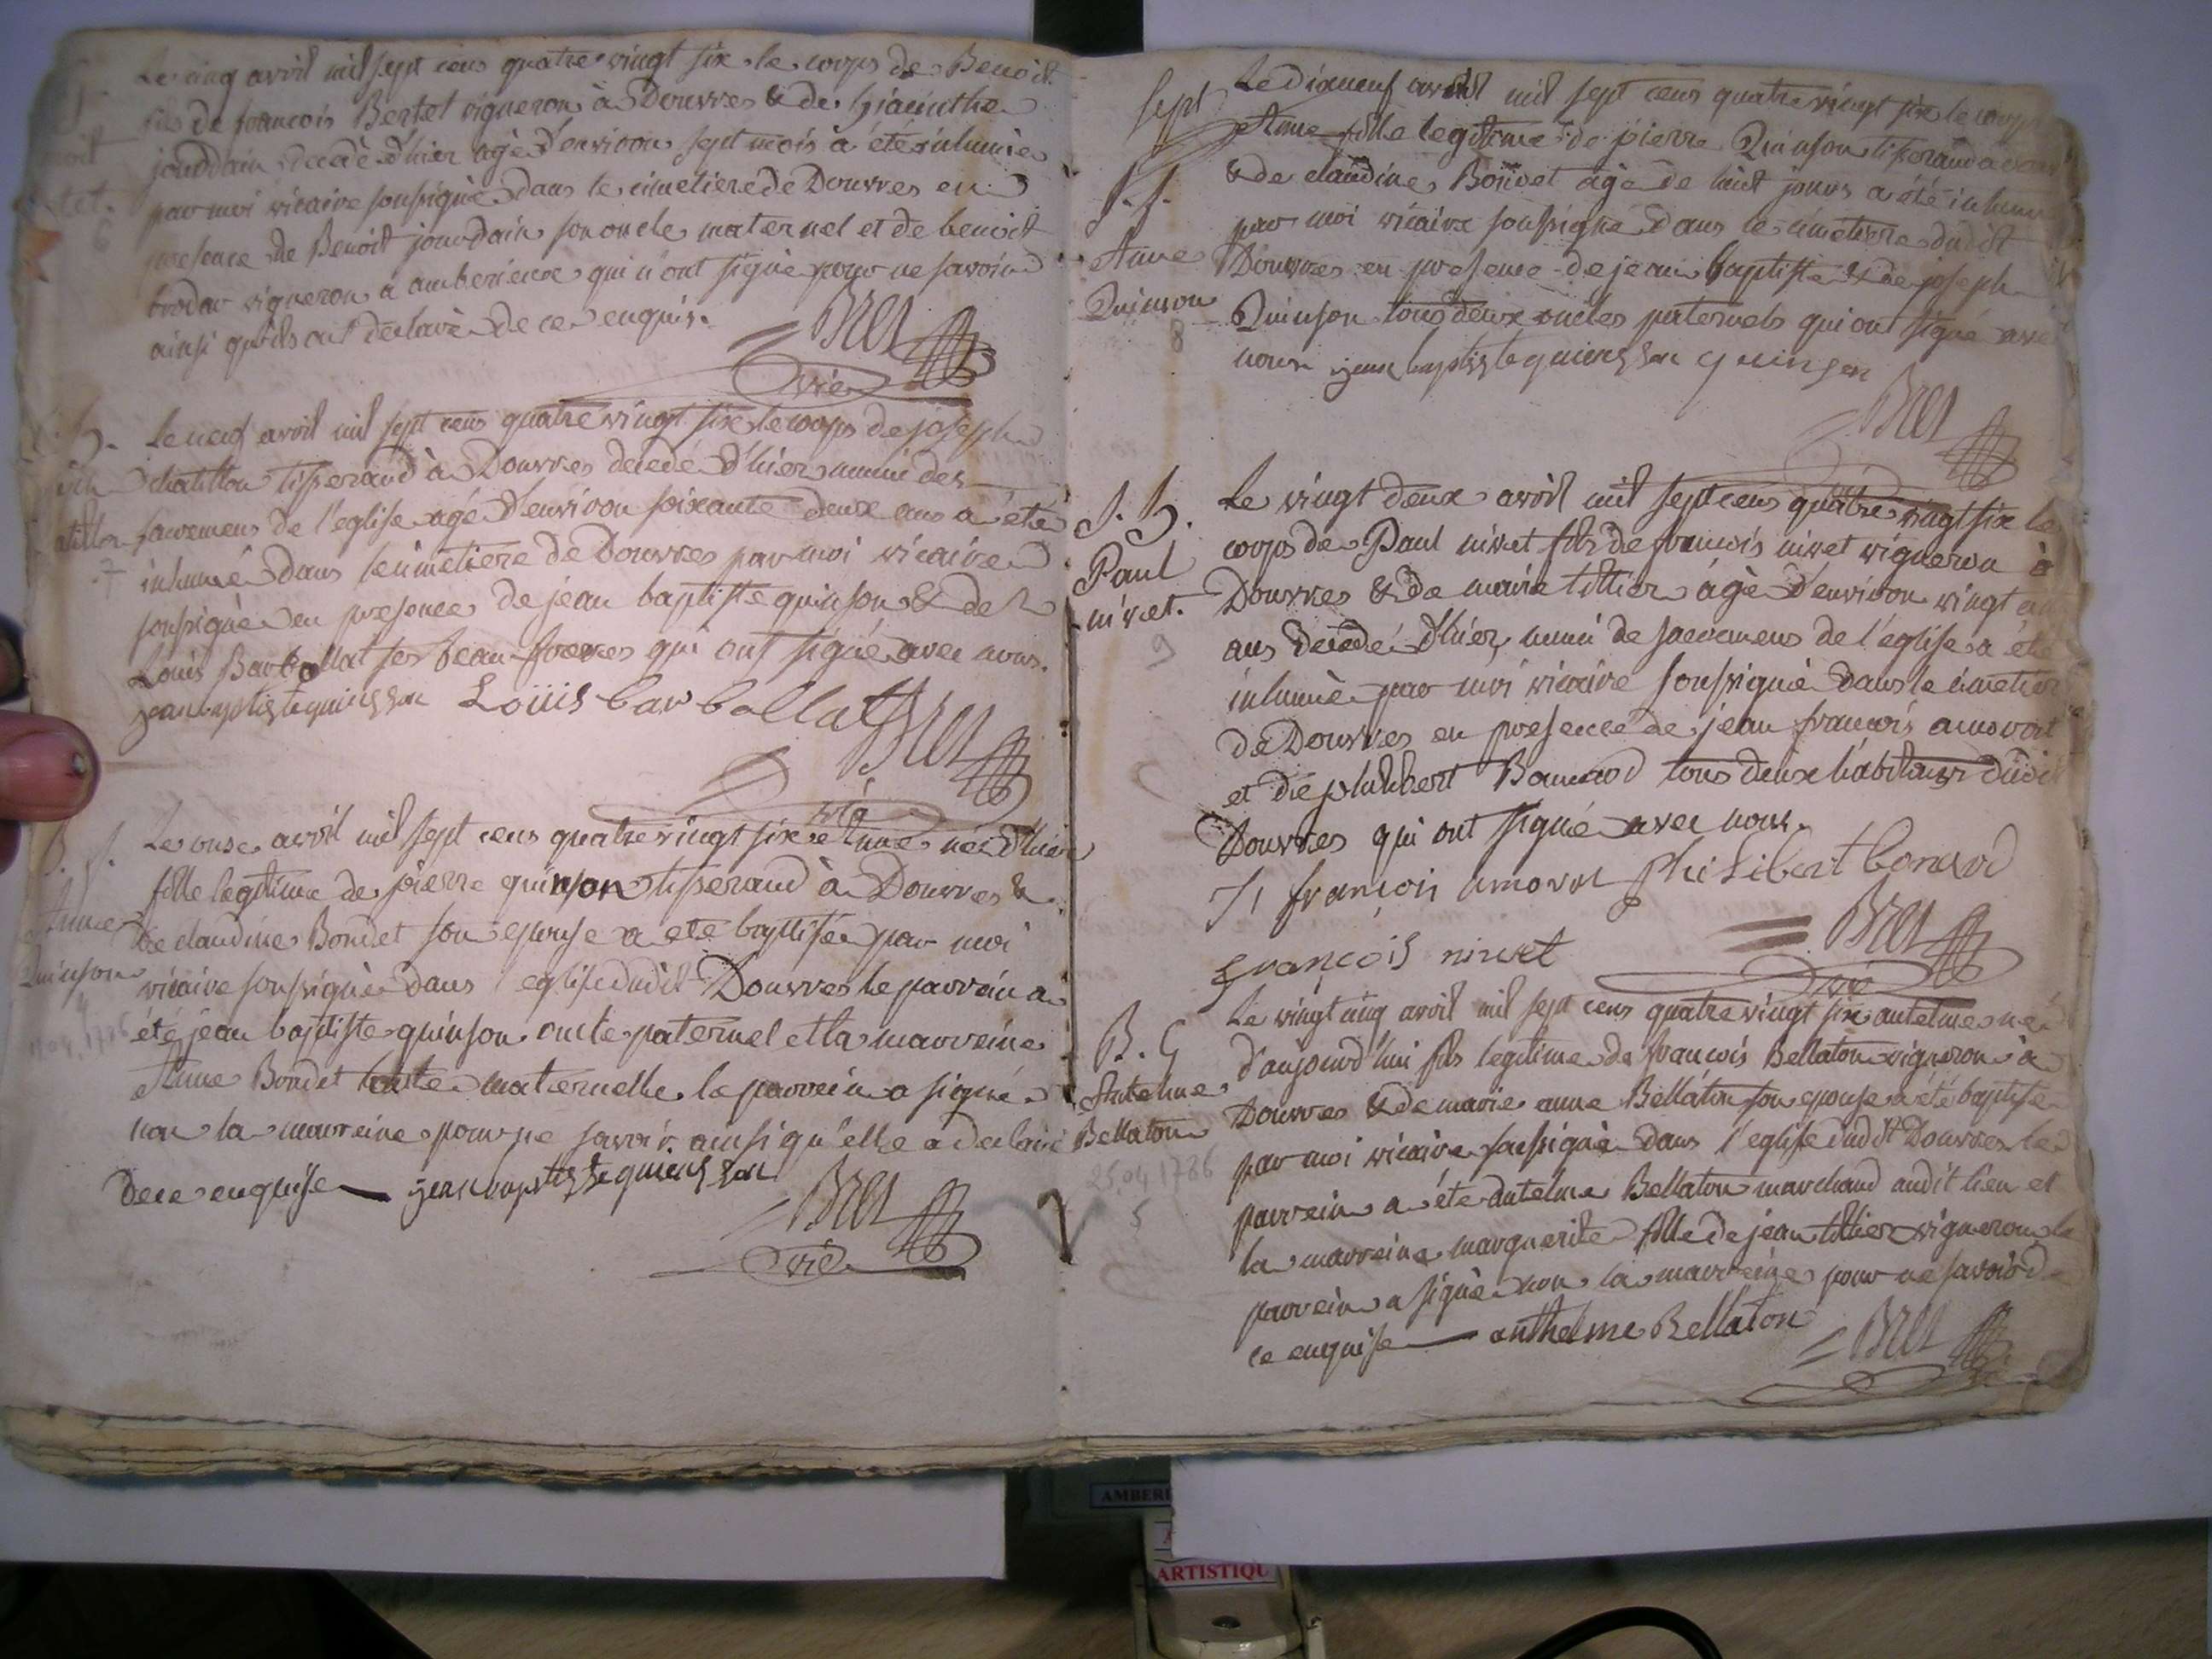 Le cinq avril mil sept cens quatre vingt six le corps de Benoit
fils de francois Bertet vigneron à Douvres & de hiacinthe
jourdain decedé d'hier agé d'environ sept mois à été inhumé
par moi vicaire soussigné dans le cimetiere de Douvres en
presence de Benoit jourdain son oncle maternel et de benoit
brodar vigneron a amberieux qui n'ont signé pour ne savoir
ainsi qu'ils ont declaré de ce enquis.
Bret
vic
S. h.
7
Le neuf avril mil sept cens quatre vingt six le corps de joseph
chatillon tisserand à Douvres decedé d'hier muni des
sacremens de l'eglise agé d'environ soixante deux ans a été
inhumé dans le cimetiere de Douvres par moi vicaire
soussigné en presence de jean baptiste quinson & de
Louis Barbollat ses beau-freres qui ont signé avec nous.
jean baptiste quinsson Loüis barbollat Bret
vic
B. f.
Anne
Quinson
4
11.04.1786
Le onse avril mil sept cens quatre vingt six Anne née d'hier
fille legitime de pierre quinson tisserand à Douvres &
de claudine Bondet son epouse a été baptisée par moi
vicaire soussigné dans l'eglise dudit Douvres le parrein a
été jean baptiste quinson oncle paternel et la marreine
Anne Bondet tante maternelle le parrein a signé
non la marreine pour ne savoir ainsi qu'elle a declaré
de ce enquise jean baptiste quinsson
Bret
vic
sept
S. f.
Anne
Quinson
8
Le dixneuf avril mil sept cens quatre vingt six le corps
Anne fille legitime de pierre Quinson tisserand a
& de claudine Bondet agée de huit jours a été
par moi vicaire soussigné dans le cimetiere dudit
Douvres en presence de jean baptiste & de joseph
Quinson tous deux oncles paternels qui ont signé avec
nous jean baptiste quinsson quinson
Bret
S. h.
Paul
nivet.
9
Le vingt deux avril mil sept cens quatre vingt six le
corps de Paul nivet fils de francois nivet vigneron à
Douvres & de marie tillier agé d'environ vingt
ans decedé d'hier, muni de sacremens de l'église a été
inhumé par moi vicaire soussigné dans le cimetiere
de Douvres en presence de jean francois
et de philibert Bonnard tous deux habitans dudit
Douvres qui ont signé avec nous.
françois philibert bonard
françois nivet
Bret
vic
B. G
Antelme
Bellaton
25.04.1786
5
Le vingt cinq avril mil sept cens quatre vingt six antelme né
d'aujourd'hui fils legitime de francois Bellaton vigneron à
Douvres & de marie anne Bellaton son epouse a été baptisé
par moi vicaire soussigné dans l'eglise dudit Douvres le
parrein a été antelme Bellaton marchand audit lieu et
la marreine marguerite fille de jean tillier vigneron le
parrein a signé non la marreine pour ne savoir de
ce enquise anthelme Bellaton
Bret
AMBERI
ARTISTIQU